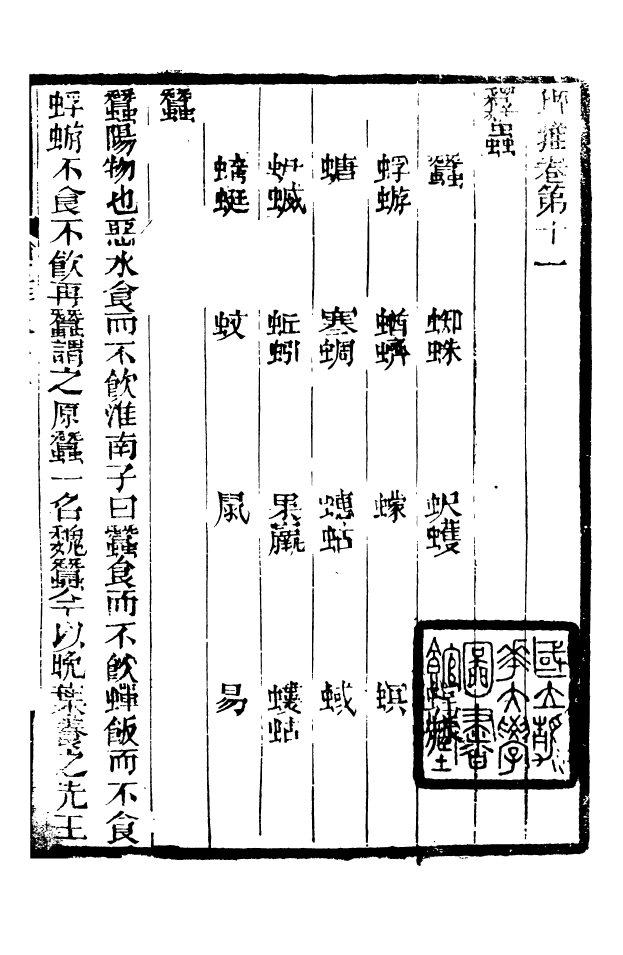 埤雅卷第十一
釋蟲
蠶 蜘蛛 蚇蠖
蜉蝣 蝤蠐 蠓 螟
螗 寒蜩 蟪蛄 蜮
蚜蠛 蚯蚓 果蠃 螻蛄
蜻蜓 蚊 鼠 易
蠶
蠶陽物也惡水食而不飲淮南子曰蠶食而不飲蟬飯而不食
蜉蝣不食不飲再蠶謂之原蠶一名魏蠶今以晚葉養之先王
國立清華大學圖書館藏